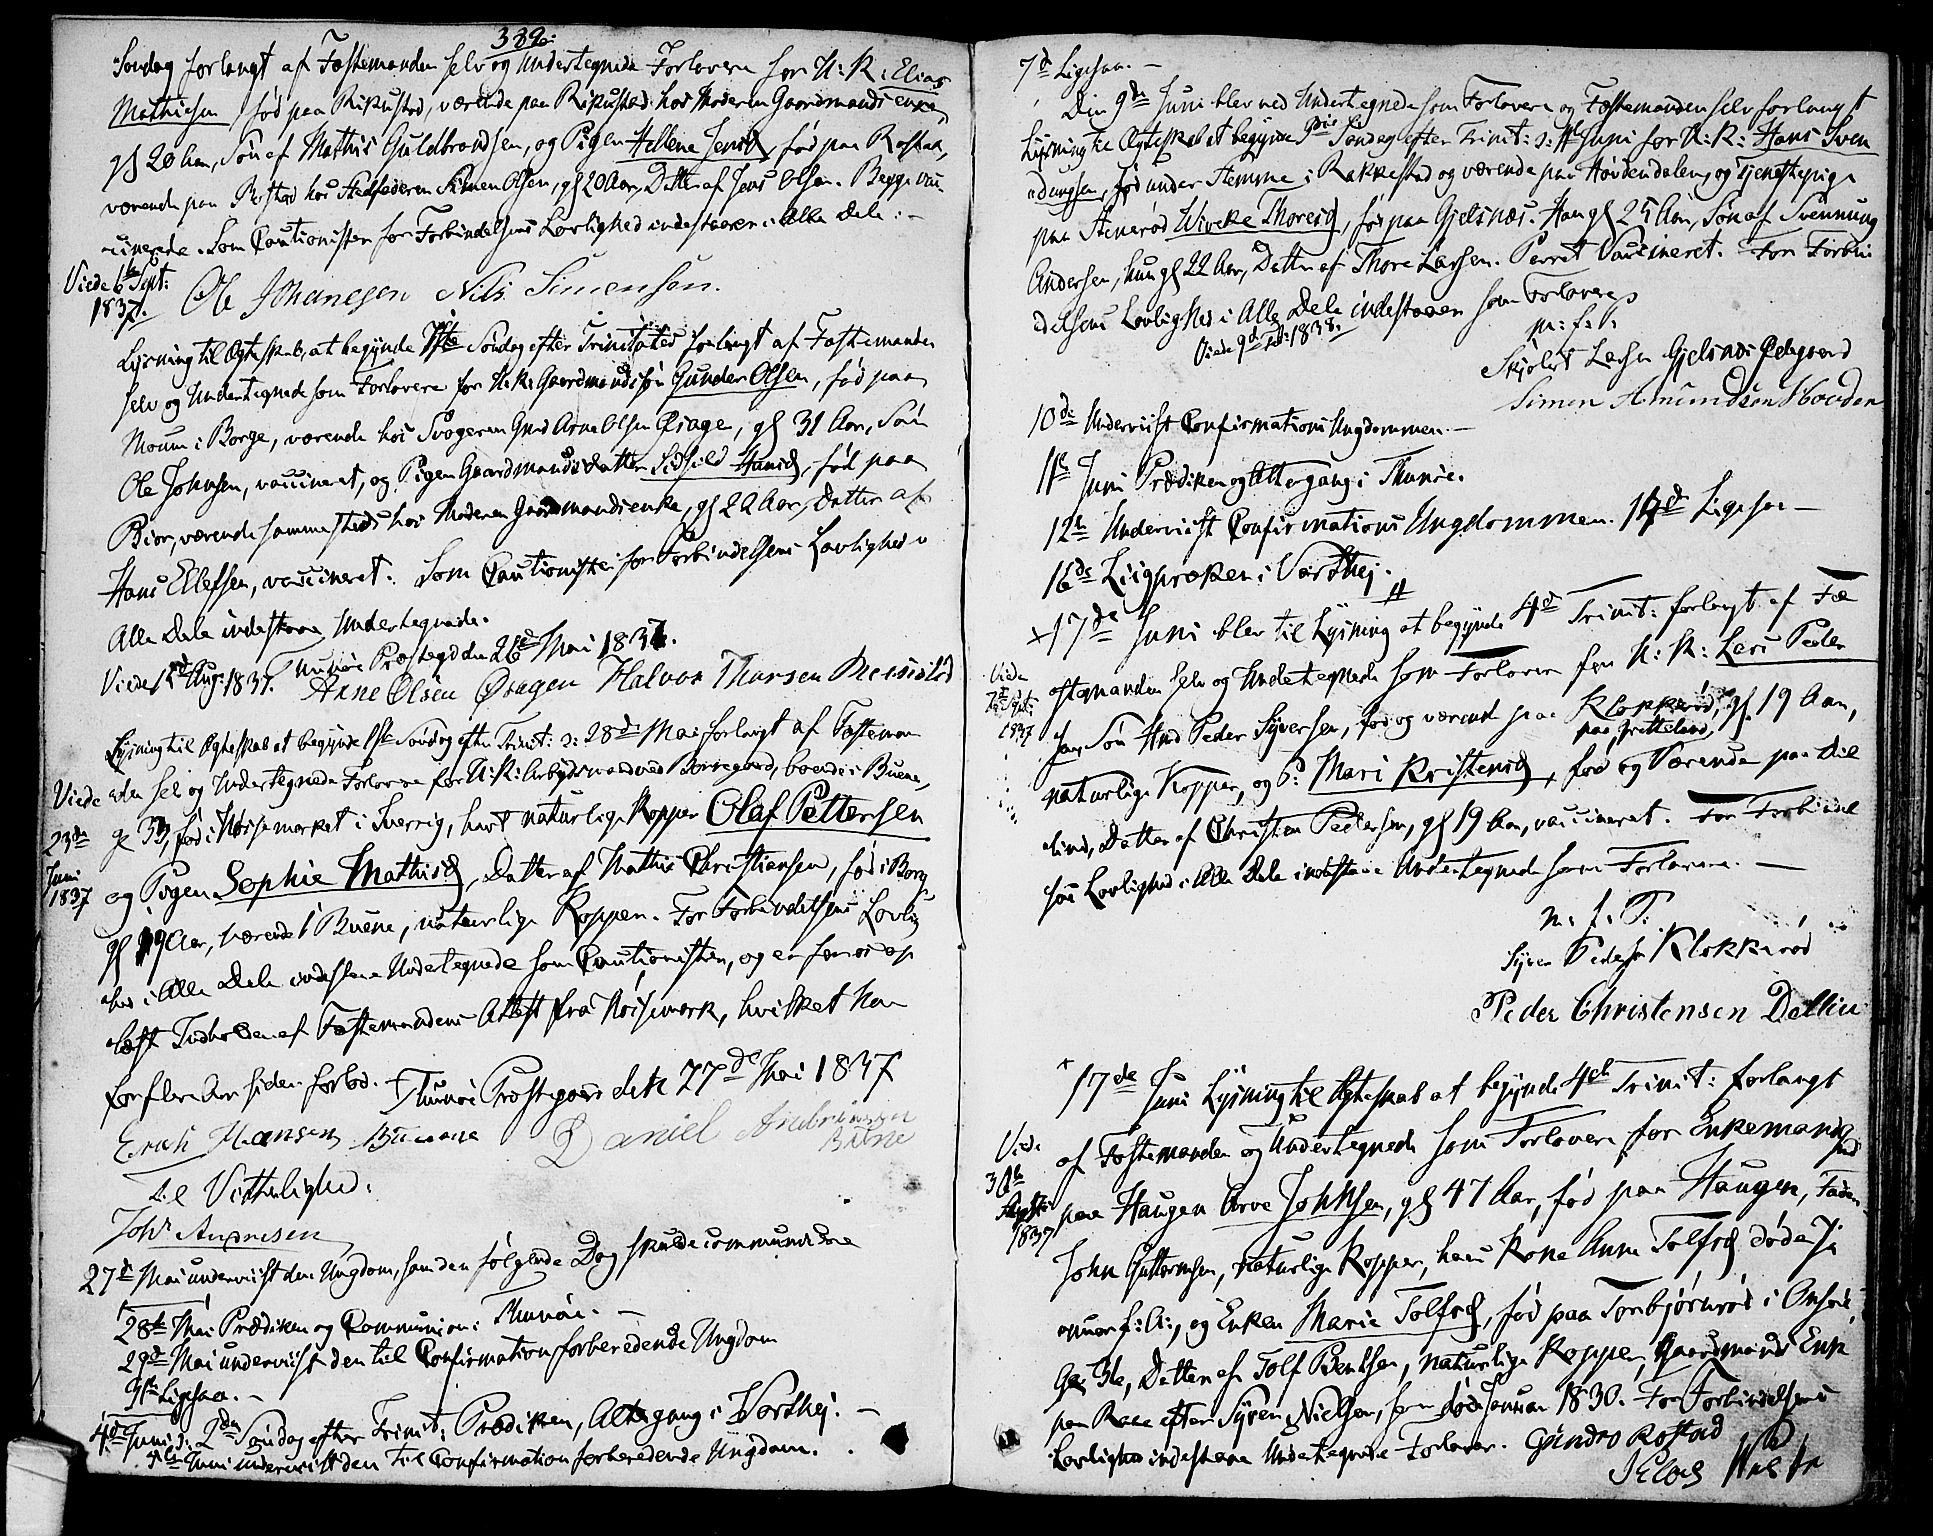 389.
Søndag forlangt af Fæstemanden selv og Undertegnede Forlovere for U: K: Elias
Mathiesen, fød paa Rikustad, værende paa Rikustad hos Moderen Gaardmands enke,
gl 20 Aar, Søn af Mathis Guldbrandsen, og Pigen Hellene Jensd, fød paa Rostad,
værende paa Rostad hos Stedfaderen Simen Olsen, gl 20 Aar, Datter af Jens Olsen. Begge vac
cinerede. Som Cautionister for Forbindelsens Lovlighed indestaaer i Alle Dele: –
Viede 6te Sept:
1837.
Ole Johanesen Nils Simensen.
Lysning til Ægteskab, at begynde 1ste Søndag efter Trinitates forlangt af Fæstemanden
selv og Undertegnede som Forlovere for U: K: Gaardmandssøn Gunder Olsen, fød paa
Moum i Borge, værende hos Svogeren Gmd Arne Olsen Øragen, gl 31 Aar, Søn
Ole Johnsen, vaccineret, og Pigen Gaardmandsdatter Hansd, fød paa
Biør, værende sammesteds hos Moderen Gaardmandsenke, gl 22 Aar, Datter af
Hans Ellefsen, vaccineret. Som Cautionister for Forbindelsens Lovlighed i
Alle Dele indestaae Undertegnede.
Thunøe Præstegd den 26de Mai 1837.
Viede Aug: 1837.
Arne Olsen Øragen Halvor Thorsen
Lysning til Ægteskab at begynde 1ste Søndag efter Trinit: ɔ: 28de Mai forlangt af Fæsteman
den selv og Undertegnede Forlovere for U: K: Arbeidsmand ved Borregaard, boende i Buene,
Viede
23de
Juni
1837
gl 33, fød i Høisemarket i Sverrig, havt naturlige Kopper Olaf Pettersen
og Pigen Sophie Mathisd, Datter af Mathis Christiansen, fød i Borg
gl 19 Aar, værende i Buene, naturlige Kopper. For Forbindelsens Lovlig
hed i Alle Dele indestaae Undertegnede som Cautionister, og er for os op
læst Indholden af Fæstemandens Attest fra Høisemark, hvilket han
for flere Aar siden forlod. – Thunøe Præstegaard den 27de Mai 1837
Hansen Buene Daniel
Buene
Til Vitterlighed.
Johs Andresen
27de Mai underviist den Ungdom, som den følgende Dag skulde communicere
28de Mai Prædiken og Communion i Thunøe. –
29de Mai underviist den til Confirmation forberedende Ungdom
31te Ligesaa. –
4de Juni ɔ: 2den Søndag efter Trinit: Prædiken, Altergang i Varthej. –
Juni underviist den til Confirmation forberedende Ungdom.
7de Ligesaa. –
Den 9de Juni blev ved Undertegnede som Forlovere og Fæstemanden selv forlangt
Lysning til Ægteskab at begynde Søndag efter Trinit: ɔ: Juni for U: K: Hans Sven
nungsen, fød under Stemme i Rakkestad og værende paa Hovdendalen, og Tjenestepige
paa Stenerød Wivcke Thoresd, fød paa Gjelsnæs. Han gl 25 Aar, Søn af Svennung
Andersen, hun gl 22 Aar, Datter af Thore Larsen. Parret Vaccineret. For Forbin
delsens Lovlighed i Alle Dele indestaaer som Forlovere
Viede 9de 1838.
m: f: P:
Larsen Gjelsnæs Ødegaard
Simen Amundsen Hovden
10de Underviist Confirmations Ungdommen –
11te Juni Prædiken og Altergang i Thunøe.
12te Underviist Confirmations Ungdommen. 14de Ligesaa –
16de Liigpræken i Varthej.
17de Juni blev til Lysning at begynde 4de Trinit: forlangt af Fæ
Viede
Sept:
1837
stemanden selv og Undertegnede som Forlovere for U: K: Lars Peder
sen Søn Gmd Peder Syversen, fød og værende paa Klokkerød, gl. 19 Aar,
naturlige Kopper, og P: Mari Kristensd, fød og Værende paa Dil
lind, Datter af Christen Pedersen, gl 19 Aar, vaccineret. For Forbindel
sens Lovlighed i Alle Dele indestaae Undertegnede som Forlovere. –
m: f: P:
Syver Pedersen Klokkerød
Peder Christensen Dellin
17de Juni Lysning til Ægteskab at begynde 4de Trinit: forlangt
Viede
1837
af Fæstemanden og Undertegnede som Forlovere for Enkemand
paa Haugen Arve Johnsen, gl 47 Aar, fød paa Haugen, Fader
John Guttormsen, naturlige Kopper, hans Kone Anne Tolfsd døde Ja
nuar f: A:, og Enken Marie Tolfsd, fød paa Torbjørnrød i Onsøe,
Datter af Tolf Bentsen, naturlige Kopper, Gaardmands Enke
paa Raae efter Syver Nielsen, som døde Januar 1830. For Forbindelsens
Lovlighed indestaae Undertegnede Forlovere. Rostad